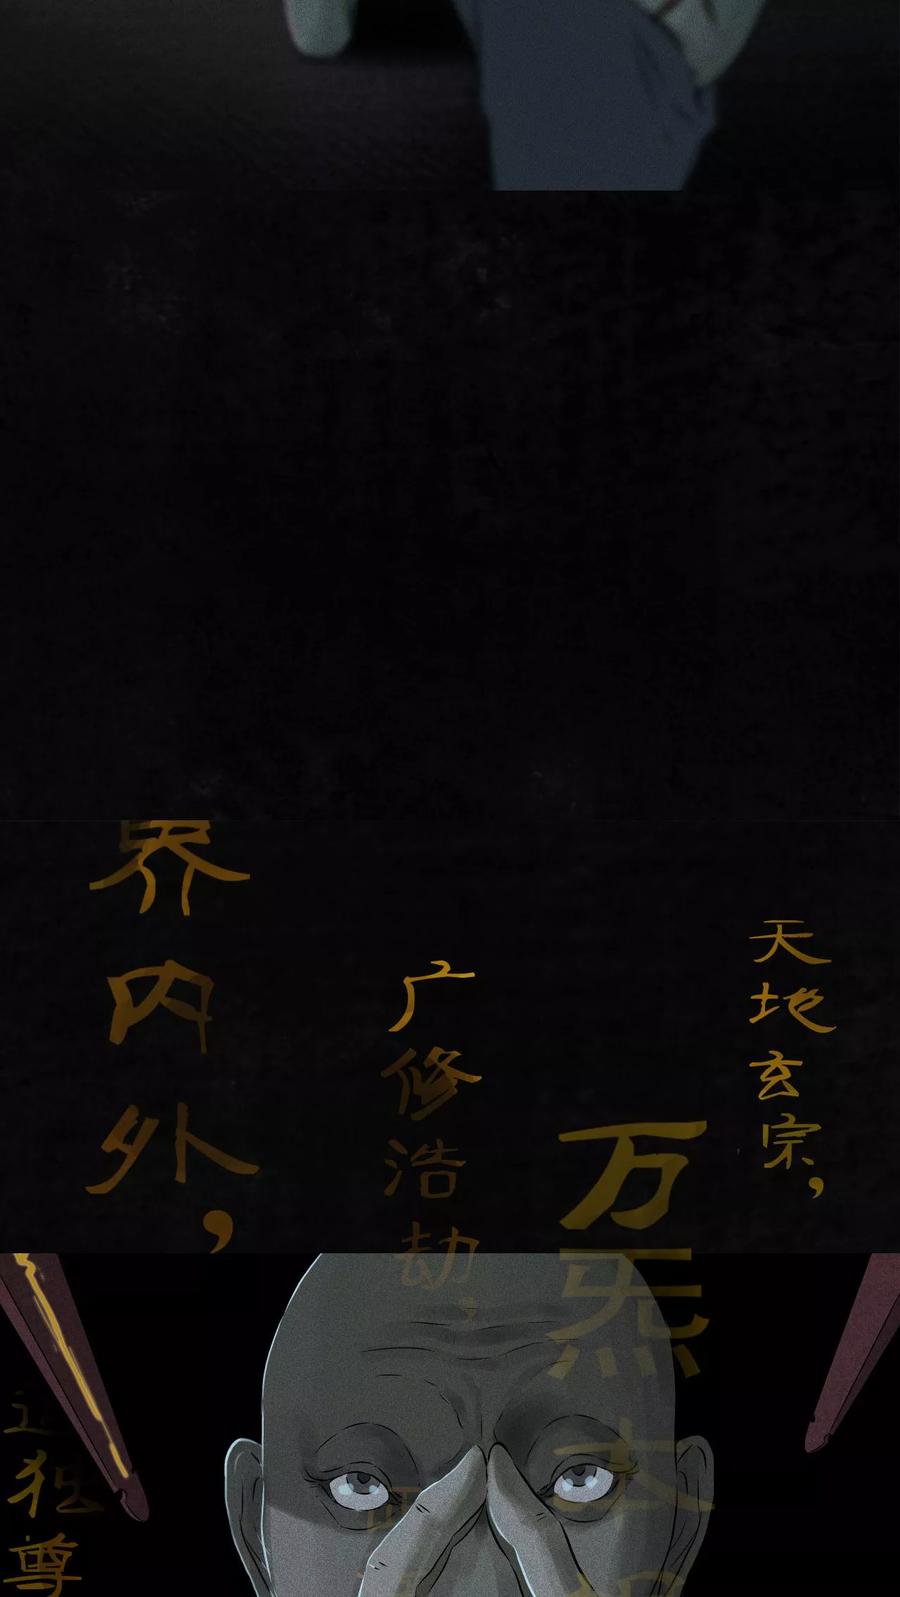 天地玄宗，
万炁本根
广修浩劫，
证
界内外，
道独尊